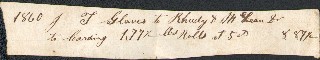 1860 J F Glaves to Rhudy & McLean Dr
to Carding 177½ lbs Rolls at 5 cts 8 87½